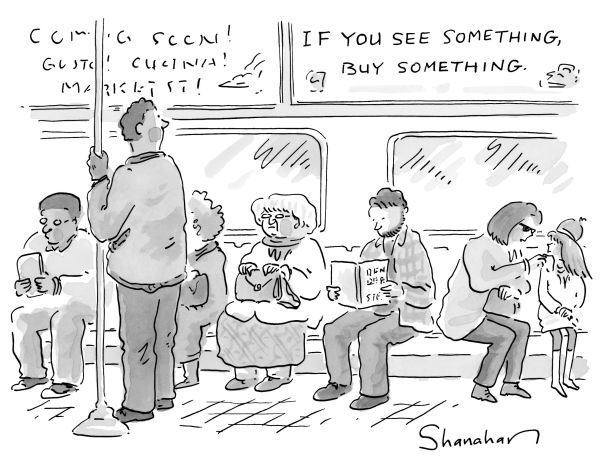 COMING SOON!
GUSTO! CUCINA!
MARKET ST!
IF YOU SEE SOMETHING,
BUY SOMETHING.
Shanahan